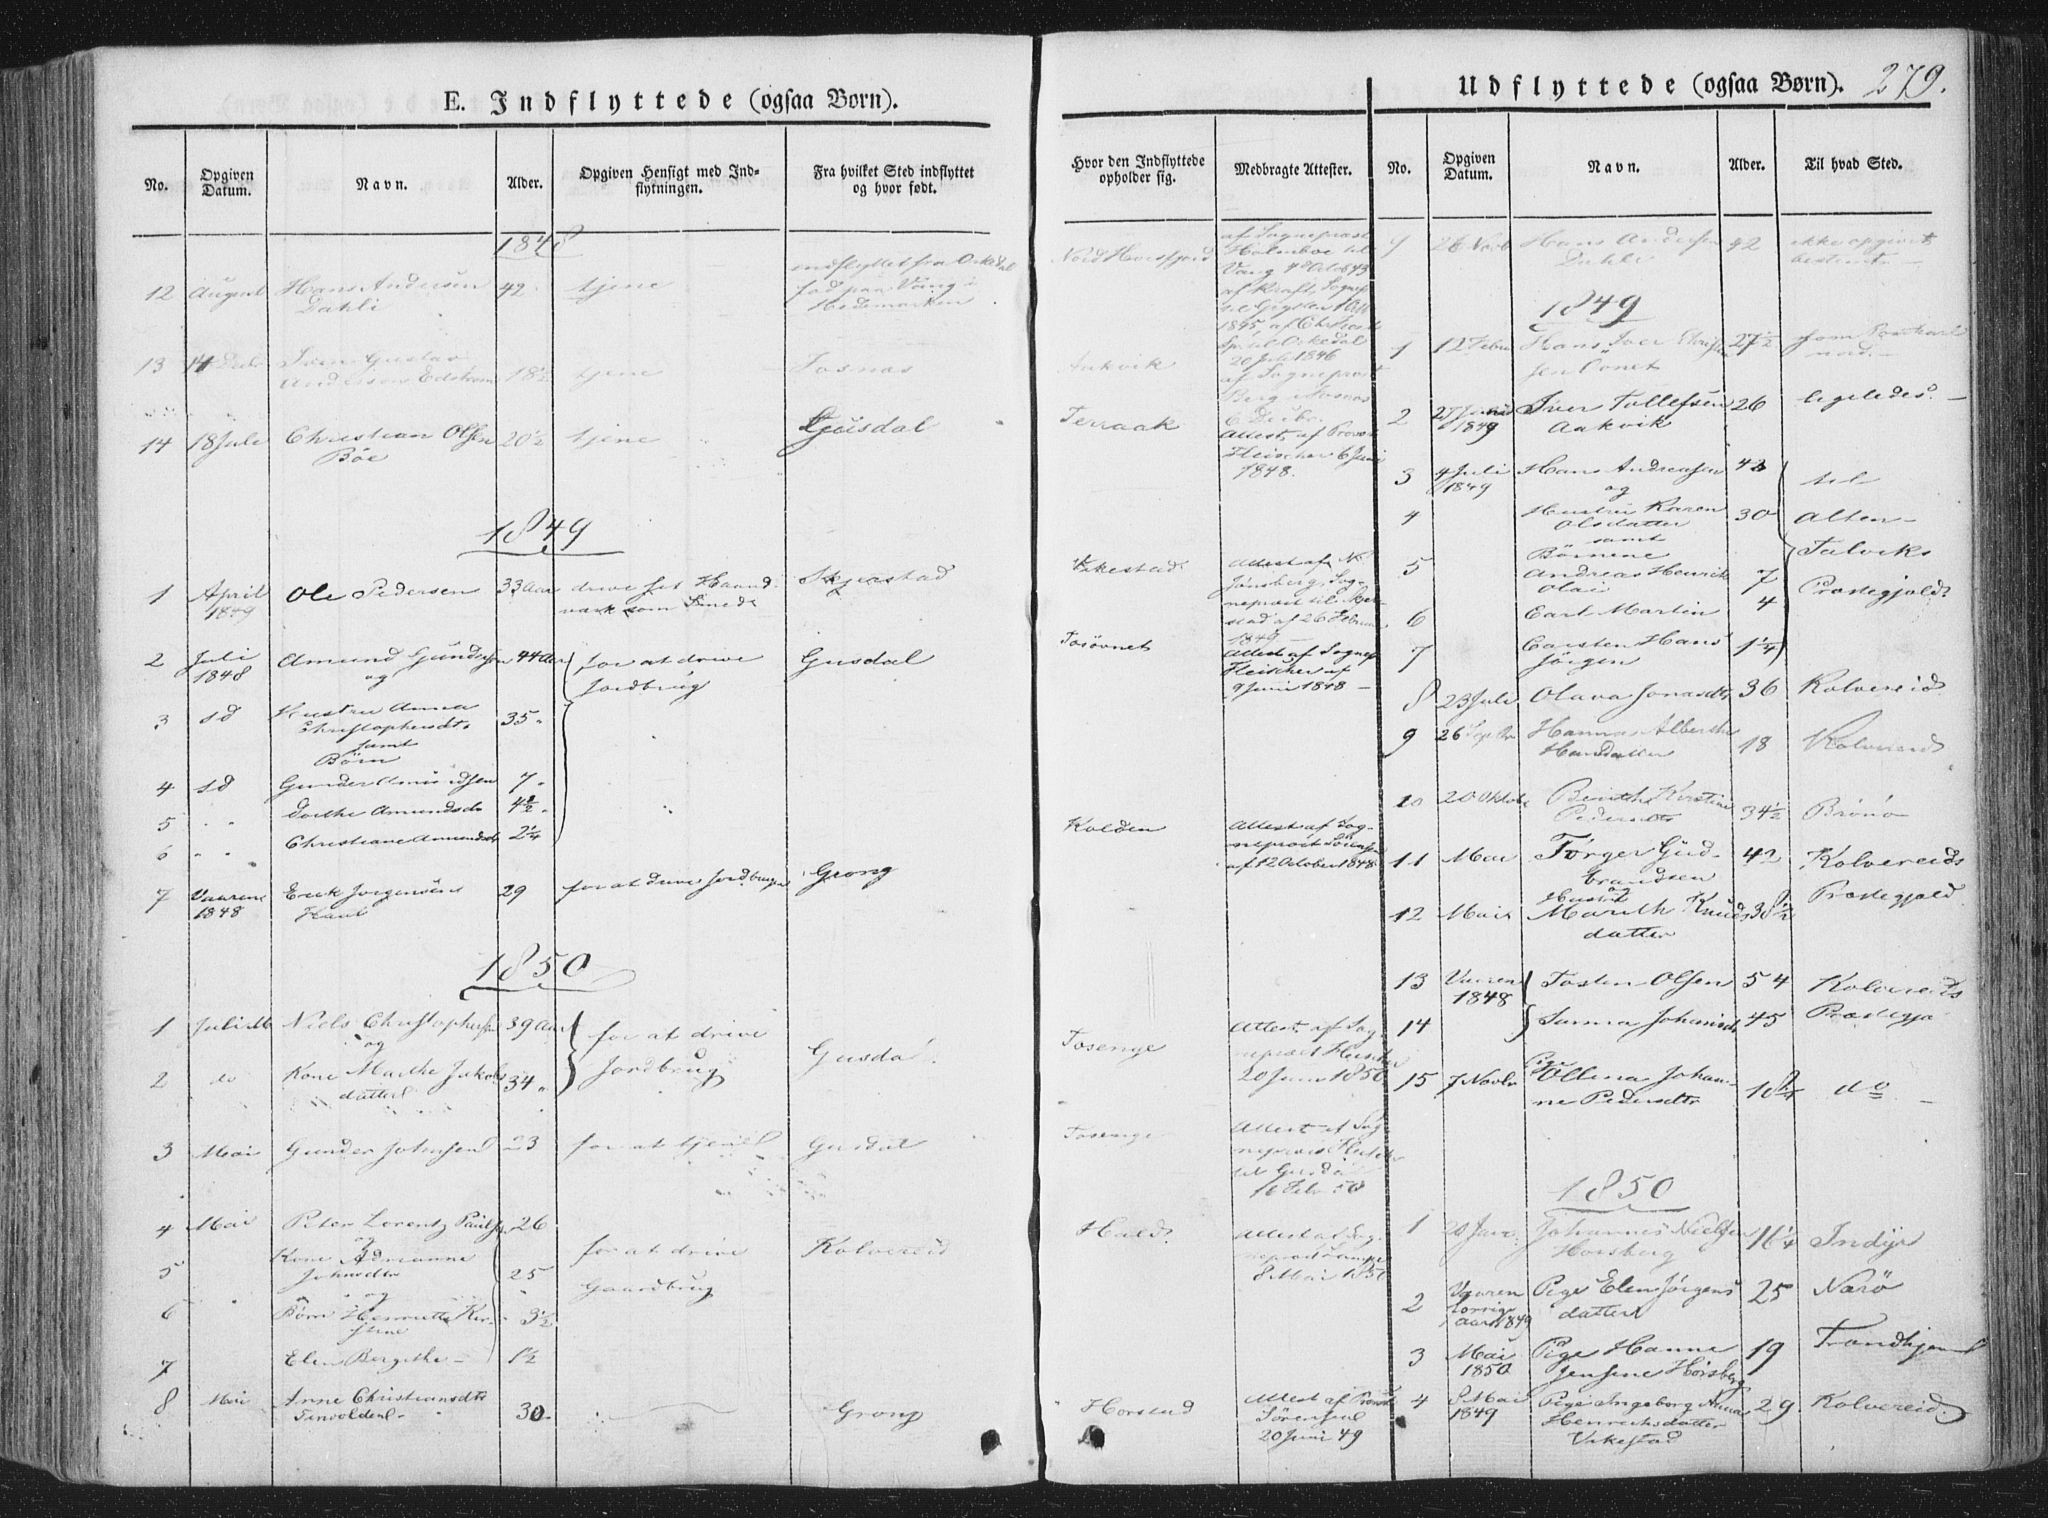 E. Indflyttede (ogsaa Børn).
No.
Opgiven Datum.
Navn.
Alder.
Opgiven Hensigt med Indflytningen.
Fra hvilket Sted indflyttet og hvor født.
1848
12 August Hans Andersen 42 tjene indflyttet fra Orkedal
Dahli fød paa Vang i
Hedemarken
13 14 Decbr Sven Gustav
Anderson Edstrom 18½ tjene Fosnæs
14 18 Juli Christian Olsen 20½ tjene Gjøisdal
Böe
1849
1 April Ole Pedersen 33 Aar drive sit Haand- Skjerstad
1849 værk som Smed
2 Juli Amund Gundersen 44 Aar for at drive Gusdal
1848 og Jordbrug
3 sd Hustru Anna 35
Christophersdtr
samt
Børn
4 sd Gunder Amundsen 7
5 Dorthe Amundsdr 4½
6 Christiane Amundsdr 2¼
7 Vaaren Erik Jørgensen 29 for at drive Jordbrug Grong
1848
1850
1 Juli Niels Christophersen 39 Aar for at drive
og Jordbrug Gusdal
2 do Kone Marthe Jakobs 34
datter
3 Mai Gunder Johnsen 23 for at tjene Gusdal
4 Mai Peter Lorentz Paulsen 26
og
5 Kone Adrianne 25 for at drive Kolvereid
Johnsdtr Gaardbrug
og
6 Børn Henriette Kir- 3½
stine
7 Elen Bergithe 1½
8 Mai Anne Christiansdtr
30 Grong
Udflyttede (ogsaa Børn). 279.
Hvor den Indflyttede opholder sig.
Medbragte Attester.
No.
Opgiven Datum.
Navn.
Alder.
Til hvad Sted.
Nord Horsfjord
af Sognepræst
Holmboe til
Vang 4 Octob 43
af Kraft, Sognep
1845, af
Orkedal
20 Juli 1846
Aakvik
af Sognepræst
Berg Fosnæs
6 Decbr.
Terraak
Attest af Provst
Fleischer 6 Juni
1848.
Vikestad
Attest af
Jønsberg, Sog-
nepræst til Skjer-
stad af 26 Februar
1849
Tosøvnet
Attest af Sognep
Fleischer af
9 Juni 1848
Kolden
Attest af Sog-
nepræst Sörensen
af 12 October 1848
Tosenge
Attest af Sog-
nepræst Fleischer
20 Juni 1850
Tosenge
Attest af Sog-
nepræst Fleischer
til Gusdal
16 Febr 50
Hald
Attest af Sog-
nepræst
8 Mai 1850
Horstad
Attest af Provst
Sörensen
20 Juni 49
9 26 Novb Hans Andersen 42 ikke opgivet
Dahli bestemt
1849
1 12 Febr Hans Iver Christen- 27½ som
sen nord
2 27 Juni Iver Tollefsen 26 ligeledes
1849 Aakvik
3 4 Juli Hans Andreasen 42 til
1849 og
4 Hustru Karen 30 Alten-
Olsdatter
samt
Børnene Talviks
5 Andreas Henrik 7 Præstegjeld
Olai
6 Carl Martin 4
7 Carsten Hans 1¼
Jørgen
8 23 Juli Olava Jonasdtr 36 Kolvereid
9 26 Septbr Hanna Alberthe 18 Kolvereid
Hansdatter
10 20 Oktobr Berith Kirstine 34½ Brønø
Pedersdtr
11 Mai Törger Gud- 42 Kolvereids
brandsen Præstegjeld
og
Hustru
12 Mai Marith Knuds 38½
datter
13 Vaaren Tosten Olsen 54 Kolvereids
1848
14 Sanna Johansdr 45 Præstegje
15 7 Novbr Pige Ollena Johan- 18 do
ne Pedersdtr
1850
1 20 Janr Johannes Nielsen 16¼ Indyr
Horsberg
2 Vaaren Pige Elen Jørgens 25 Nærö
forrige datter
aar 1849
3 Mai Pige Hanne 19 Trondhjem
1850 Jensine Horsberg
4 8 Mai Pige Ingeborg Anna 29 Kolvereid
1849 Henrichsdatter
Vikestad